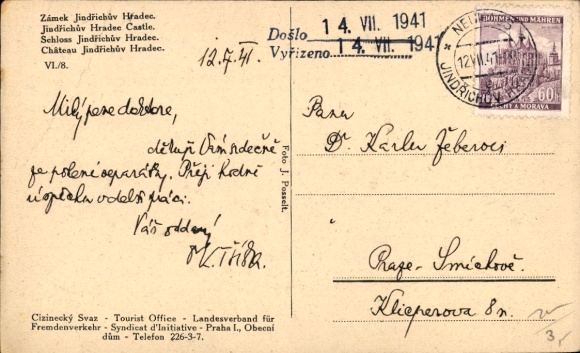 Zámek Jindřichův Hradec.
Jindřichův Hradec Castle.
Schloss Jindřichův Hradec.
Château Jindřichův Hradec.
VI./8.
12.7.41.
Došlo 14. VII. 1941
Vyřízeno 14. VII. 194
BÖHMEN UND MÄHREN
60
12.VII.41
JINDŘICHŮV
Milý pane doktore,
děkuji Vám srdečně
za poslání separátky. Přeji hodně
úspěchu v další práci.
Váš oddaný
Foto J. Posselt.
Panu
Dr Karlu Žeberovi
Praze - Smíchově.
Klicperova 8n.
3,
Cizinecký Svaz - Tourist Office - Landesverband für
Fremdenverkehr - Syndicat d'Initiative - Praha I., Obecní
dům - Telefon 226-3-7.